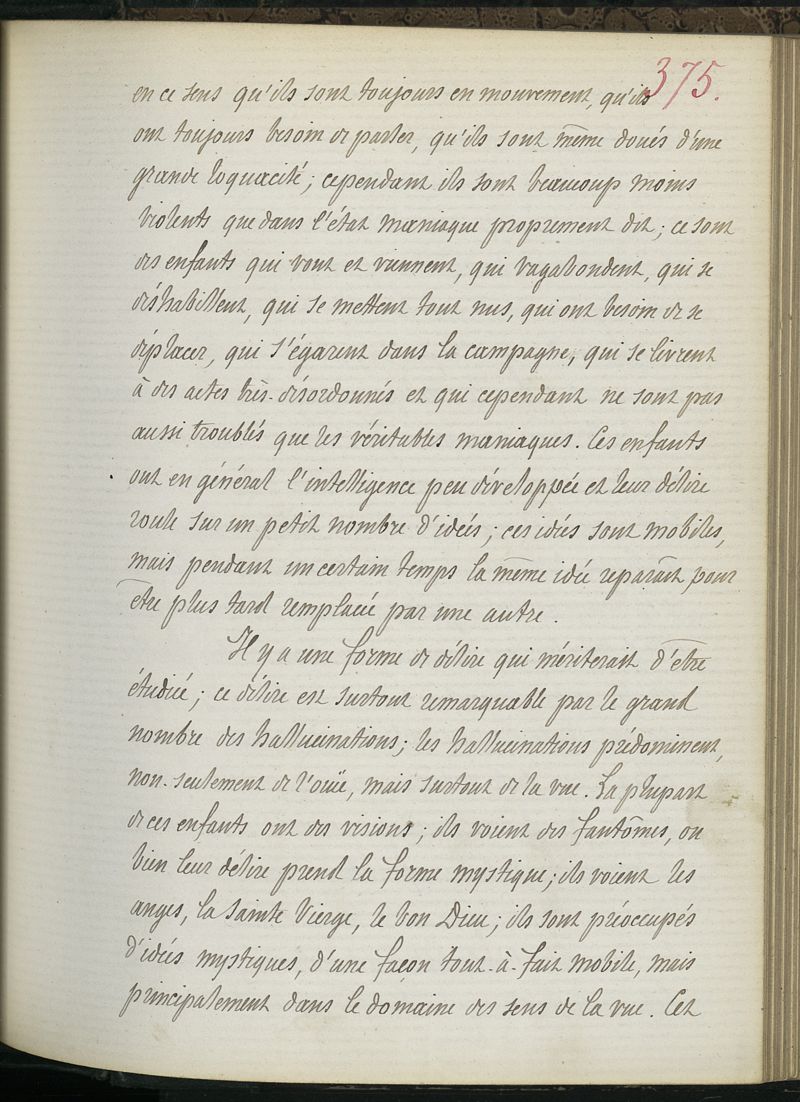 375.
en ce sens qu'ils sont toujours en mouvement, qu'ils
ont toujours besoin de parler, qu'ils sont même doués d'une
grande loquacité; cependant ils sont beaucoup moins
violents que dans l'état maniaque proprement dit; ce sont
des enfants qui vont et viennent, qui vagabondent, qui se
déshabillent, qui se mettent tout nus, qui ont besoin de se
déplacer, qui s'égarent dans la campagne, qui se livrent
à des actes très-désordonnés et qui cependant ne sont pas
aussi troublés que les véritables maniaques. Ces enfants
ont en général l'intelligence peu développée et leur délire
roule sur un petit nombre d'idées; ces idées sont mobiles,
mais pendant un certain temps la même idée reparaît pour
être plus tard remplacée par une autre.
Il y a une forme de délire qui mériterait d'être
étudiée; ce délire est surtout remarquable par le grand
nombre des hallucinations; les hallucinations prédominent,
non-seulement de l'ouïe, mais surtout de la vue. La plupart
de ces enfants ont des visions; ils voient des fantômes, ou
bien leur délire prend la forme mystique; ils voient les
anges, la Sainte Vierge, le bon Dieu; ils sont préoccupés
d'idées mystiques, d'une façon tout-à-fait mobile, mais
principalement dans le domaine des sens de la vue. Cet